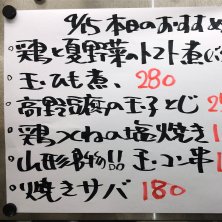 4/15 本日のおすすめ
・鶏と夏野菜のトマト煮
・玉ひも煮、280
・高野豆腐の玉子とじ 2
・鶏×ねの塩焼き 1
・山形名物!! 玉コン串 1
・焼きサバ 180